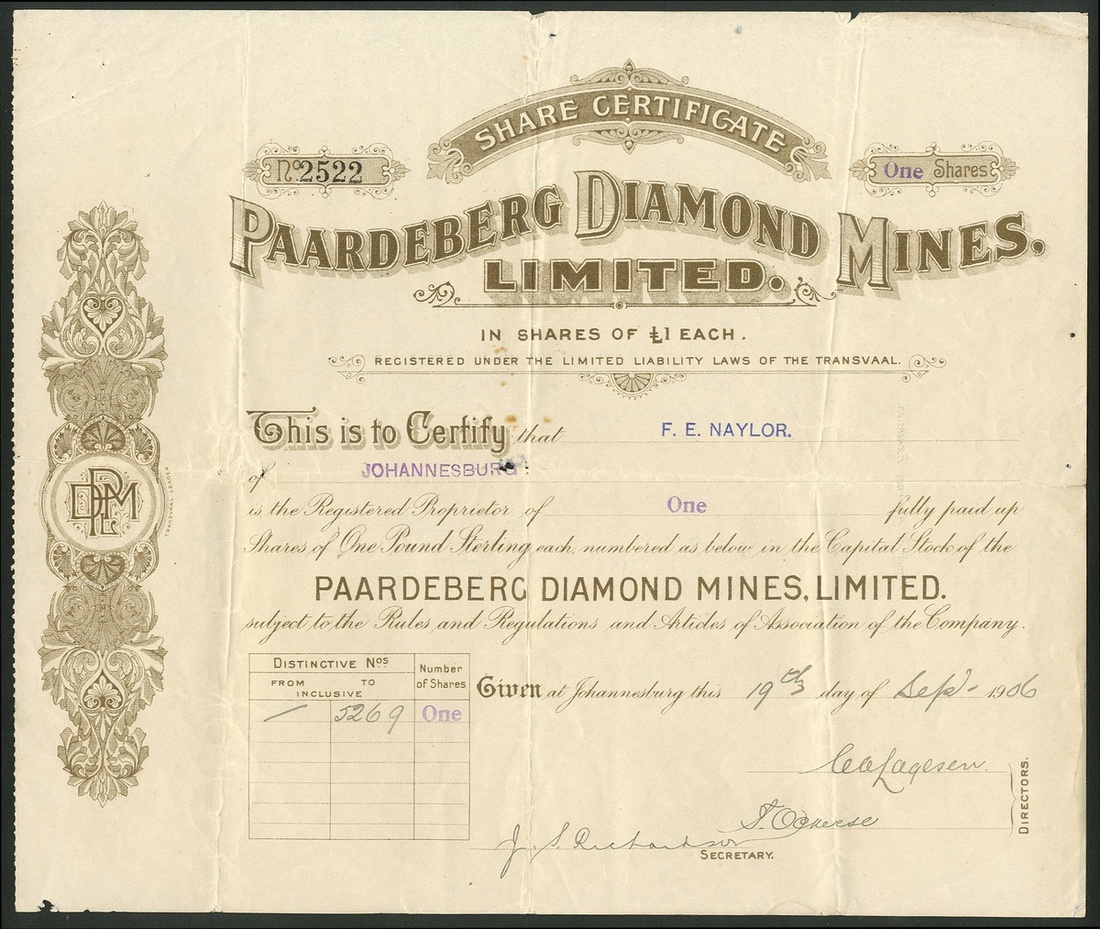 SHARE CERTIFICATE
No 2522
One Shares
PAARDEBERG DIAMOND MINES,
LIMITED.
IN SHARES OF £1 EACH.
REGISTERED UNDER THE LIMITED LIABILITY LAWS OF THE TRANSVAAL.
This is to Certify that F. E. NAYLOR.
of JOHANNESBURG:
is the Registered Proprietor of One fully paid up
Shares of One Pound Sterling each, numbered as below in the Capital Stock of the
PAARDEBERG DIAMOND MINES, LIMITED.
subject to the Rules and Regulations and Articles of Association of the Company.
DISTINCTIVE Nos
Number of Shares
FROM TO
INCLUSIVE
— 5269 One
Given at Johannesburg this 19th day of Sept 1906
DIRECTORS.
J. S. Richardson
SECRETARY.
PDML
TRANSVAAL LEADER